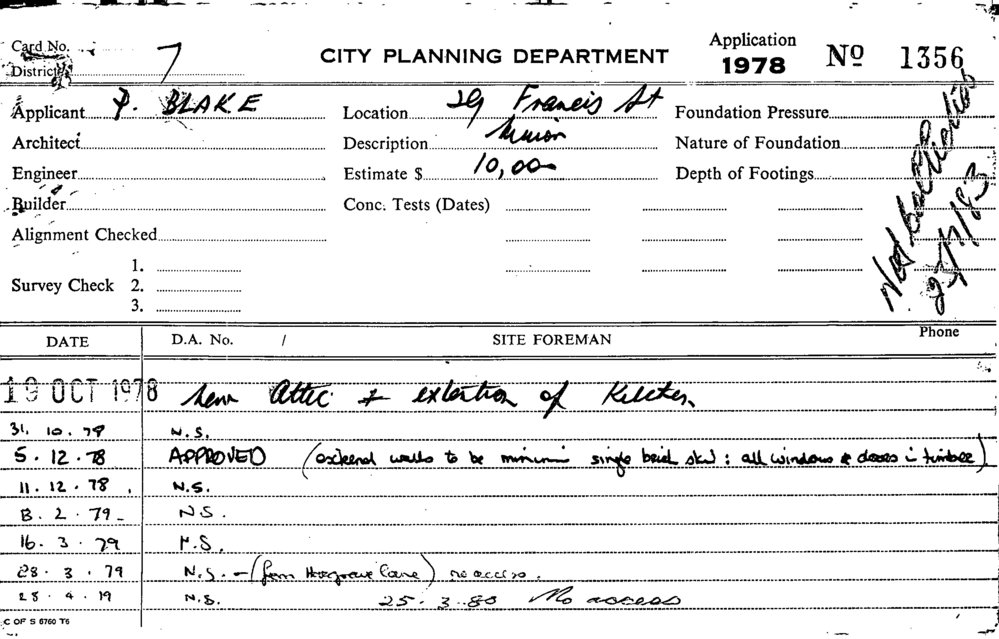 Card No.
District 7
CITY PLANNING DEPARTMENT
Application
1978
Nº 1356
Applicant P. BLAKE
Location 29 Francis St
Foundation Pressure
Architect
Description Minor
Nature of Foundation
Engineer
Estimate $ 10,000
Depth of Footings
Builder
Conc. Tests (Dates)
Alignment Checked
Survey Check
1.
2.
3.
Not
25/7/83
DATE
D.A. No. /
SITE FOREMAN
Phone
19 OCT 1978 New Attic & extention of Kitchen
31. 10. 78 N.S.
5. 12. 78 APPROVED (external walls to be minimum single brick skin: all windows & doors in timber)
11. 12. 78. N.S.
2. 79 N.S.
16. 3. 79 N.S.
28. 3. 79 N.S. - (from Hargrave Lane) no access.
28. 4. 79 N.S. 25. 3. 80 No access
C OF S 6760 T6